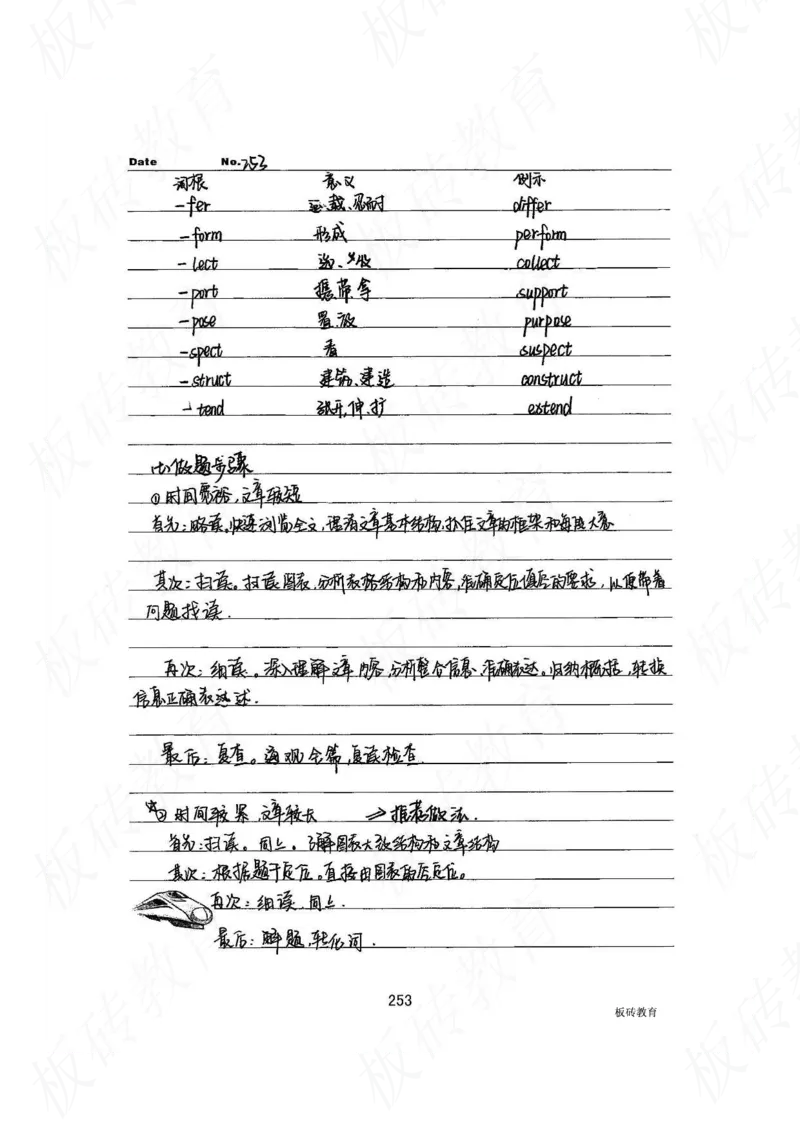 Date No. 253
词根 意义 例示
-fer 运、载、忍耐 differ
-form 形成 perform
-lect 选、收 collect
-port 携带、拿 support
-pose 置、放 purpose
-spect 看 suspect
-struct 建筑、建造 construct
-tend 张开,伸,扩 extend
做题步骤
①时间宽裕,文章较短
首先:略读。快速浏览全文,理清文章基本结构,抓住文章的框架和每段大意
其次:扫读。扫读图表,分析表格结构和内容,准确定位填空的要求,以便带着
问题找读.
再次:细读。深入理解文章内容,分析整合信息,准确表达。归纳概括,转换
信息正确表达述.
最后:复查。通观全篇,复读检查
②时间较紧,文章较长 ⇒推荐做法.
首先:扫读。同上。了解图表大致结构和文章结构
其次:根据题干定位。直接由图表前后定位。
再次:细读.同上.
最后:解题,转化词.
253
板砖教育